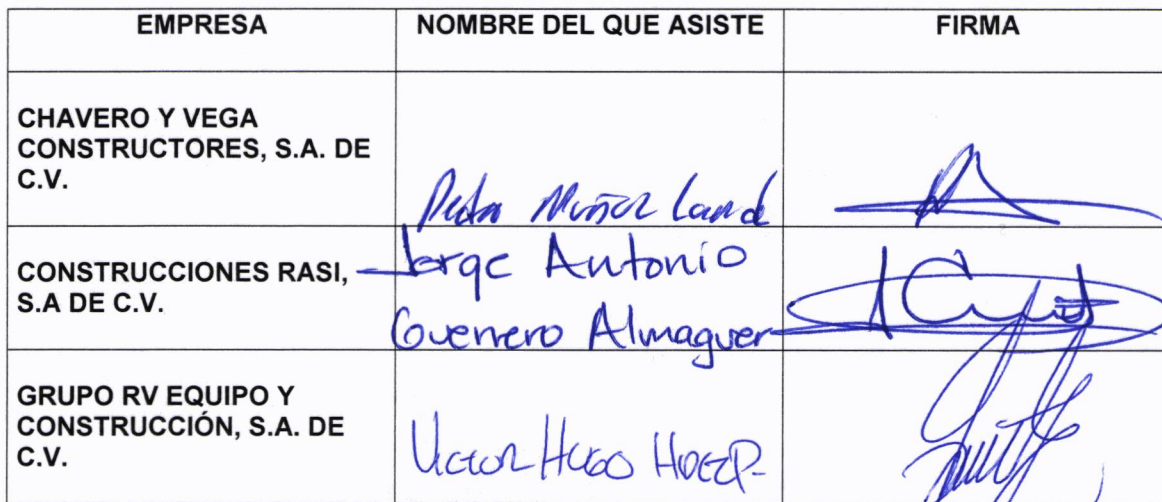 EMPRESA NOMBRE DEL QUE ASISTE FIRMA
CHAVERO Y VEGA
CONSTRUCTORES, S.A. DE
C.V.
Muñoz
CONSTRUCCIONES RASI,
S.A DE C.V.
Jorge Antonio
Guerrero Almaguer
GRUPO RV EQUIPO Y
CONSTRUCCIÓN, S.A. DE
C.V.
Victor Hugo